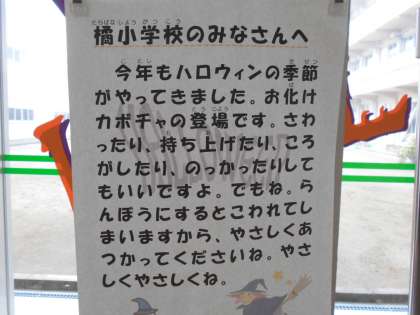 橘小学校のみなさんへ
今年もハロウィンの季節
がやってきました。お化け
カボチャの登場です。さわ
ったり、持ち上げたり、ころ
がしたり、のっかったりして
もいいですよ。でもね。ら
んぼうにするとこわれてし
まいますから、やさしくあ
つかってくださいね。やさ
しくやさしくね。